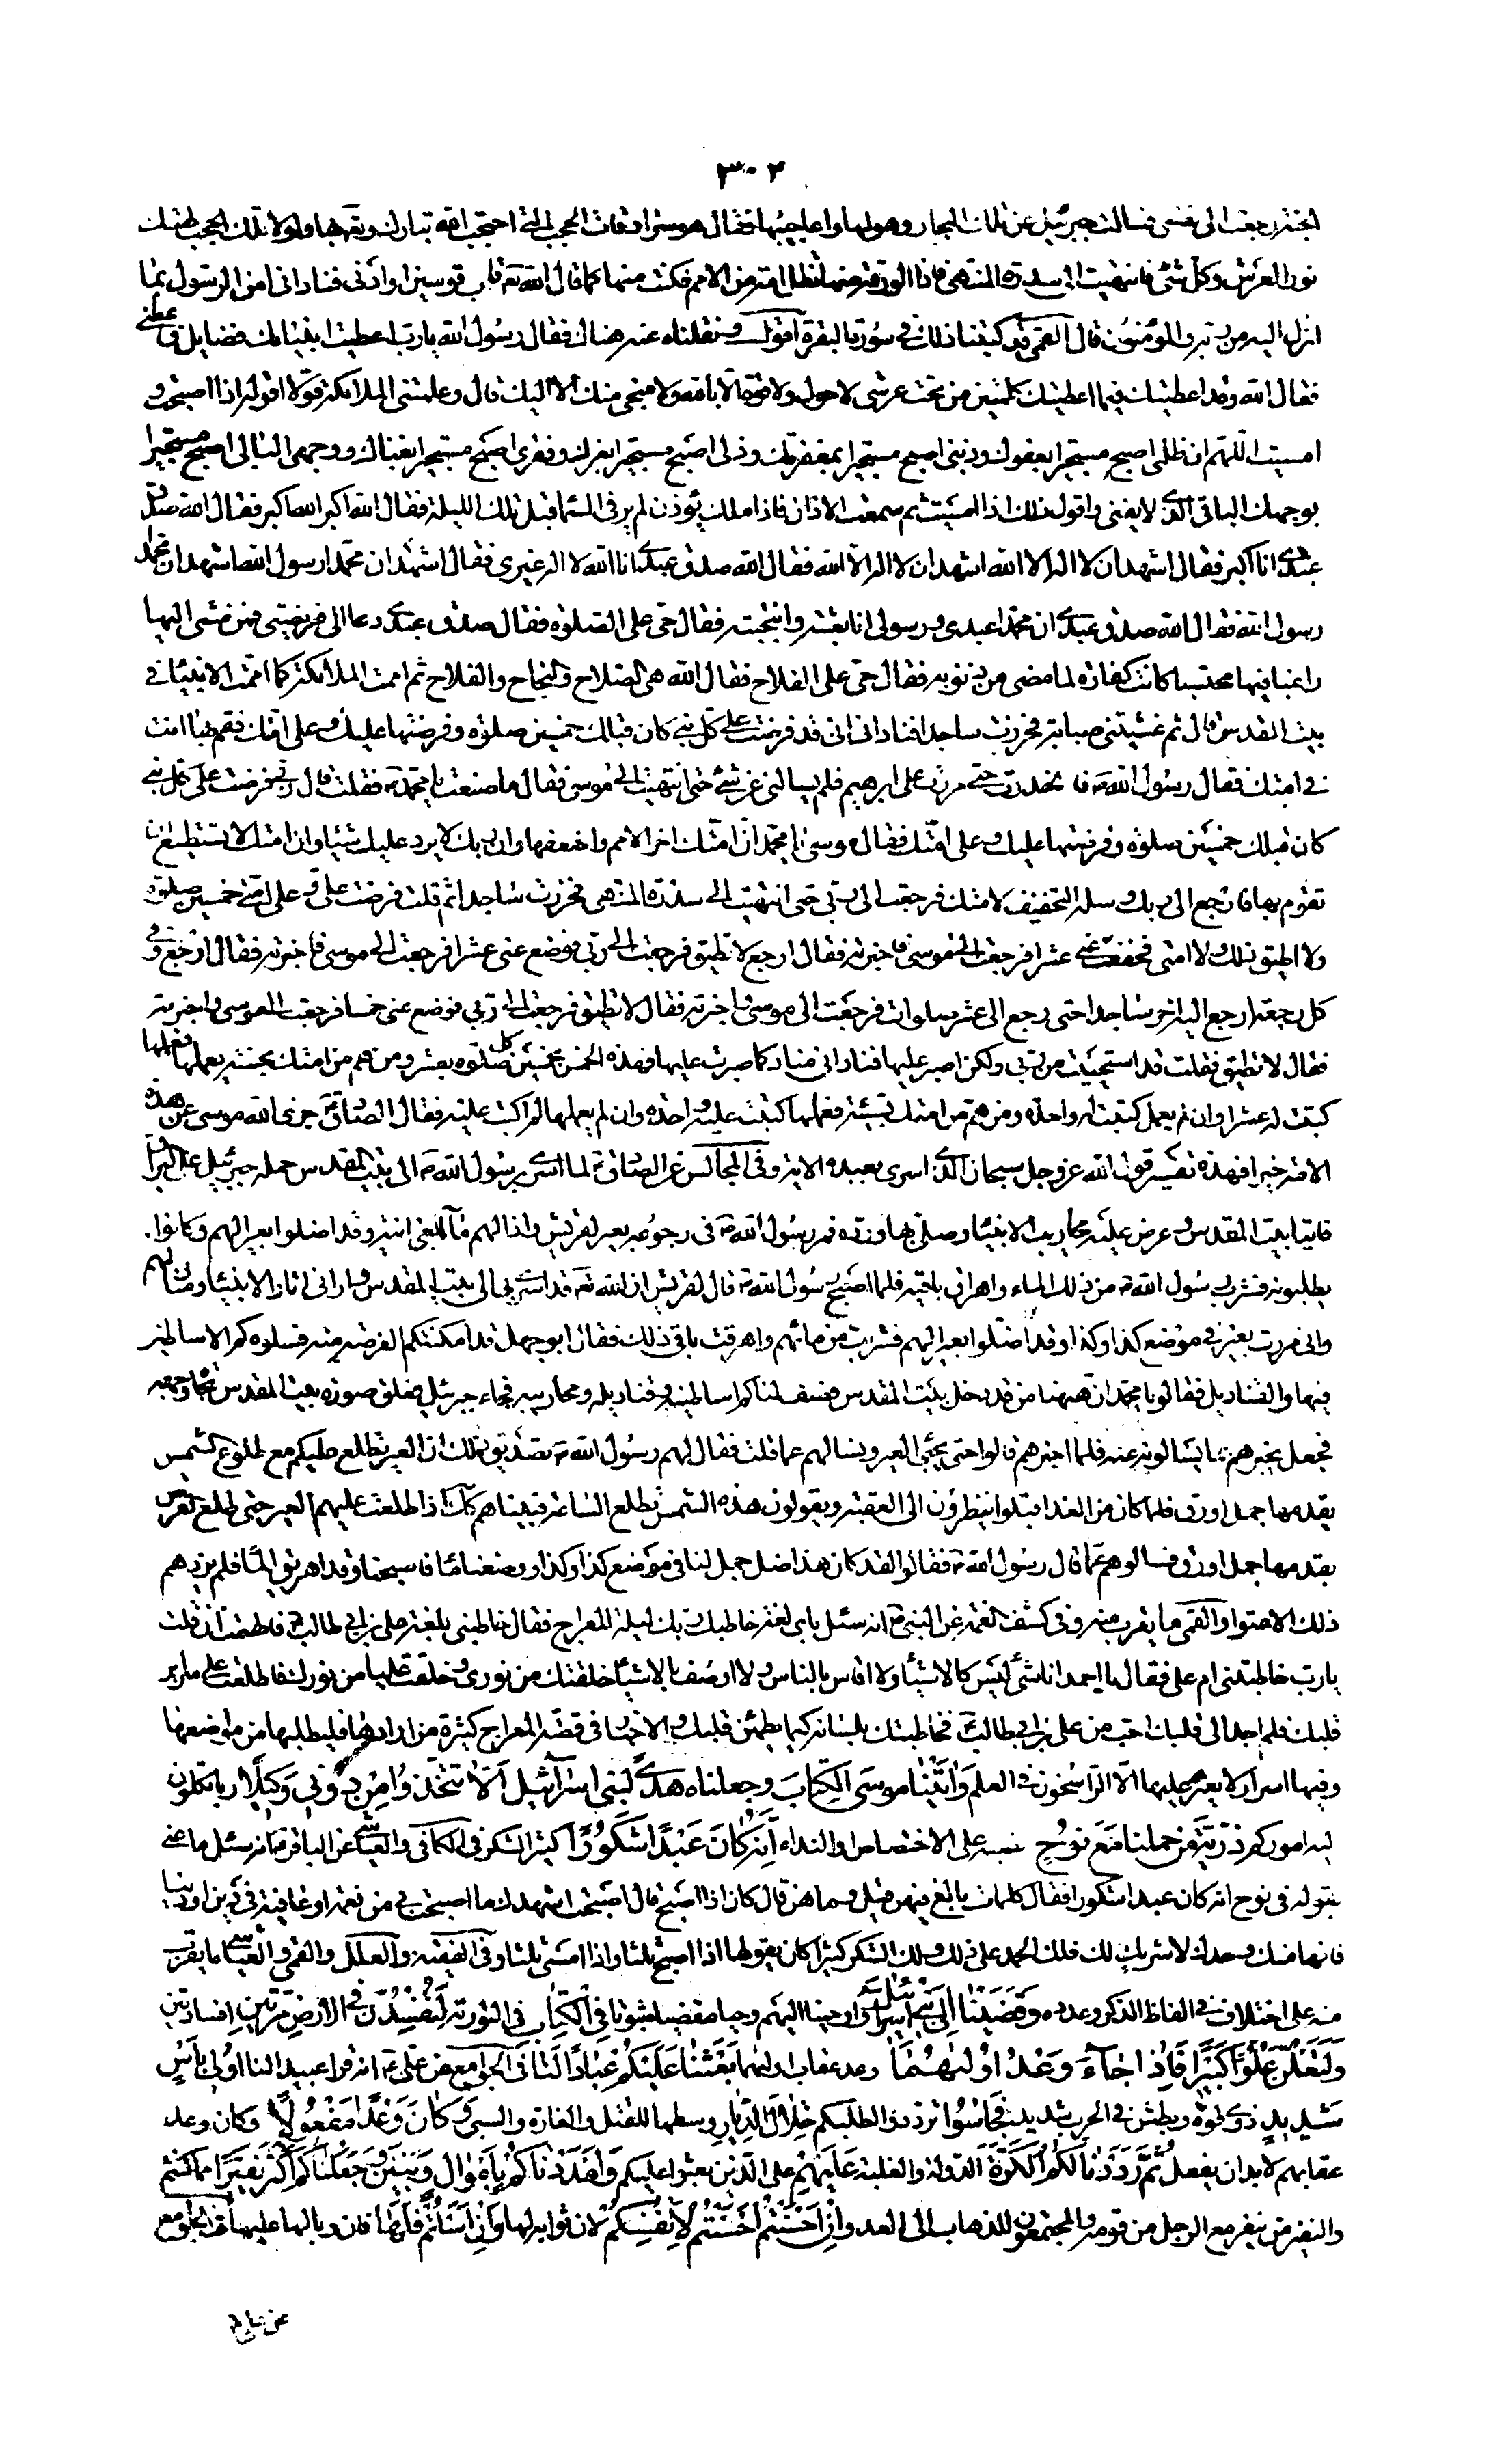 ٣٠٢
الجنة رجعت الى نفسى فسالت جبرئيل عن تلك البحار وهولها واعاجيبها فقال هو سرادقات الحجب التى احتجب الله تبارك وتعـ بها ولولا تلك الحجب لهتك
نور العرش وكل شئ فانتهيت الى سدرة المنتهى فاذا الورقة منها تظل امة من الامم فكنت منها كما قال الله تعـ قاب قوسين او ادنى فنادانى امن الرسول بما
انزل اليه من ربه والمؤمنون قال القمى قد كتبنا ذلك فى سورة البقرة اقول ونقلناه عنه هناك فقال رسول الله يارب اعطيت انبياءك فضايل فاعطنى
فقال الله وقد اعطيتك فيما اعطيتك كلمتين من تحت عرشى لا حول ولا قوة الا بالله ولا منجى منك الا اليك قال وعلمتنى الملائكة قولا اقوله اذا اصبحت و
امسيت اللهم ان ظلمى اصبح مستجيرا بعفوك وذنبى اصبح مستجيرا بمغفرتك وذلى اصبح مستجيرا بعزك وفقرى اصبح مستجيرا بغناك ووجهى البالى اصبح مستجيرا
بوجهك الباقى الذى لا يفنى واقول ذلك اذا امسيت ثم سمعت الاذان فاذا ملك يؤذن لم ير فى السماء قبل تلك الليلة فقال الله اكبر الله اكبر فقال الله صدق
عبدى انا اكبر فقال اشهد ان لا اله الا الله اشهد ان لا اله الا الله فقال الله صدق عبدى انا الله لا اله غيرى فقال اشهد ان محمدا رسول الله اشهد ان محمدا
رسول الله فقال الله صدق عبدى ان محمدا عبدى ورسولى انا بعثته وانتجبته فقال حى على الصلوة فقال صدق عبدى دعا الى فريضتى فمن مشى اليها
راغبا فيها محتسبا كانت كفارة لما مضى من ذنوبه فقال حى على الفلاح فقال الله هى الصلاح والنجاح والفلاح ثم اممت الملائكة كما اممت الانبياء فى
بيت المقدس قال ثم غشيتنى صبابة فخررت ساجدا فنادانى انى قد فرضت على كل نبى كان قبلك خمسين صلوة وفرضتها عليك وعلى امتك فقم بها انت
فى امتك فقال رسول الله ص فانحدرت حتى مررت على ابرهيم فلم يسالنى عن شئ حتى انتهيت الى موسى فقال ما صنعت يا محمد فقلت قال ربى فرضت على كل نبى
كان قبلك خمسين صلوة وفرضتها عليك وعلى امتك فقال موسى يا محمد ان امتك اخر الامم واضعفها وان ربك لا يرد عليك شيئا وان امتك لا تستطيع ان
تقوم بها فارجع الى ربك وسله التخفيف لامتك فرجعت الى ربى حتى انتهيت الى سدرة المنتهى فخررت ساجدا ثم قلت فرضت على وعلى امتى خمسين صلوة
ولا اطيق ذلك ولا امتى فخفف عنى عشرا فرجعت الى موسى فاخبرته فقال ارجع لا تطيق فرجعت الى ربى فوضع عنى عشرا فرجعت الى موسى فاخبرته فقال ارجع وفى
كل رجعة ارجع اليه اخر ساجدا حتى رجع الى عشر صلوات فرجعت الى موسى فاخبرته فقال لا تطيق فرجعت الى ربى فوضع عنى خمسا فرجعت الى موسى واخبرته
فقال لا تطيق فقلت قد استحييت من ربى ولكن اصبر عليها فنادانى مناد كما صبرت عليها فهذه الخمس بخمسين كل صلوة بعشر ومن هم من امتك بحسنة يعملها فعملها
كتبت له عشرا وان لم يعمل كتبت له واحدة ومن هم من امتك بسيئة فعملها كتبت عليه واحدة وان لم يعملها لم اكتب عليه فقال الصادق ع جزى الله موسى عن هذه
الامة خيرا فهذه تفسير قول الله عز وجل سبحان الذى اسرى بعبده الاية وفى المجالس عن الصادق ع لما اسرى برسول الله ص الى بيت المقدس حمله جبرئيل على البراق
فاتيا بيت المقدس وعرض عليه محاريب الانبياء وصلى بها ورده فمر رسول الله ص فى رجوعه بعير لقريش واذا لهم ماء فى انية وقد اضلوا بعيرا لهم وكانوا
يطلبونه فشرب رسول الله ص من ذلك الماء واهرق باقيه فلما اصبح رسول الله ص قال لقريش ان الله تعـ قد اسرى بى الى بيت المقدس وارانى اثار الانبياء ومنازلهم
وانى مررت بعير فى موضع كذا وكذا وقد اضلوا بعيرا لهم فشربت من مائهم واهرقت باقى ذلك فقال ابو جهل قد امكنتكم الفرصة منه فسلوه كم الاساطين
فيها والقناديل فقالوا يا محمد ان ههنا من قد دخل بيت المقدس فصف لنا كم اساطينه وقناديله ومحاريبه فجاء جبرئيل فعلق صورة بيت المقدس تجاه وجهه
فجعل يخبرهم بما يسالونه عنه فلما اخبرهم قالوا حتى يجئ العير ونسالهم عما قلت فقال لهم رسول الله ص تصديق ذلك ان العير تطلع عليكم مع طلوع الشمس
يقدمها جمل اورق فلما كان من الغد اقبلوا ينظرون الى العقبة ويقولون هذه الشمس تطلع الساعة فبيناهم كذلك اذ طلعت عليهم العير حتى طلع القرص
يقدمها جمل اورق فسالوهم عما قال رسول الله ص فقالوا لقد كان هذا ضل جمل لنا فى موضع كذا وكذا ووضعنا ماء فاصبحنا وقد اهريق الماء فلم يزدهم
ذلك الا عتوا والقمى ما يقرب منه وفى كشف الغمة عن النبى ص انه سئل باى لغة خاطبك ربك ليلة المعراج فقال خاطبنى بلغة على بن ابى طالب ع فالهمنى ان قلت
يا رب خاطبتنى ام على فقال يا احمد انا شئ ليس كالاشياء ولا اقاس بالناس ولا اوصف بالاشياء خلقتك من نورى وخلقت عليا من نورك فاطلعت على سراير
قلبك فلم اجد الى قلبك احب من على بن ابى طالب ع فخاطبتك بلسانه كيما يطمئن قلبك والاخبار فى قصة المعراج كثيرة من ارادها فليطلبها من مواضعها
وفيها اسرار لا يعثر عليها الا الراسخون فى العلم وَاٰتَيْنَا مُوسَى الْكِتَابَ وجعلناه هُدًى لبنى اسرآئيل اَلَّا تَتَّخِذُوا مِنْ دُونِى وَكِيلًا ربا تكلون
اليه اموركم ذُرِّيَّةَ مَنْ حملنا مَعَ نُوحٍ نصبه على الاختصاص او النداء اِنَّهُ كَانَ عَبْدًا شَكُورًا كثير الشكر فى الكافى والعياشى عن الباقر ع انه سئل ما عنى
بقوله فى نوح انه كان عبدا شكورا فقال كلمات بالغ فيهن قيل وما هن قال كان اذا اصبح قال اصبحت اشهدك ما اصبحت بى من نعمة او عافية فى دين او دنيا
فانها منك وحدك لا شريك لك فلك الحمد على ذلك ولك الشكر كثيرا كان يقولها اذا اصبح ثلثا واذا امسى ثلثا وفى الفقيه والعلل والقمى والعياشى ما يقرب
منه على اختلاف فى الفاظ الذكر وعدده وَقَضَيْنَا اِلَى بَنِى اِسْرَائِيلَ واوحينا اليهم وحيا مقضيا مبتوتا فِى الْكِتَابِ فى التورية لَتُفْسِدُنَّ فِى الْاَرْضِ مَرَّتَيْنِ افسادتين
وَلَتَعْلُنَّ عُلُوًّا كَبِيرًا فَاِذَا جَآءَ وَعْدُ اُولٰيهُمَا وعد عقاب اوليهما بَعَثْنَا عَلَيْكُمْ عِبَادًا لَنَا فى الجوامع عن على ع انه قرا عبيدا لنا اُولِى بَاْسٍ
شَدِيدٍ ذوى قوة وبطش فى الحرب شديد فَجَاسُوا ترددوا لطلبكم خِلَالَ الدِّيَارِ وسطها للقتل والغارة والسبى وَكَانَ وَعْدًا مَفْعُولًا وكان وعد
عقابهم لا بد ان يفعل ثُمَّ رَدَدْنَا لَكُمُ الْكَرَّةَ الدولة والغلبة عَلَيْهِمْ على الذين بعثوا عليكم وَاَمْدَدْنَاكُمْ بِاَمْوَالٍ وَبَنِينَ وَجَعَلْنَاكُمْ اَكْثَرَ نَفِيرًا مما كنتم
والنفير من ينفر مع الرجل من قومه والمجتمعون للذهاب الى العدو اِنْ اَحْسَنْتُمْ اَحْسَنْتُمْ لِاَنْفُسِكُمْ لان ثوابه لها وَاِنْ اَسَاْتُمْ فَلَهَا فان وبالها عليها فى الجوامع
عن على ع